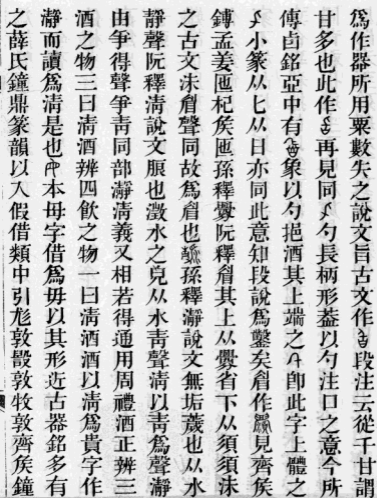 爲作器所用粟數失之說文旨古文作段注云從千甘謂
甘多也此作再見同勺長柄形葢以勺注口之意今所
傳卣銘亞中有象以勺挹酒其上端之卽此字上體之
小篆从匕从日亦同此意知段說爲鑿矣眉作見齊矦
鎛孟姜匜杞矦匜孫釋釁阮釋眉其上从釁省下从須須沫
之古文沬眉聲同故爲眉也孫釋瀞說文無垢薉也从水
靜聲阮釋淸說文朖也澂水之皃从水靑聲淸以靑爲聲瀞
由爭得聲爭靑同部瀞淸義又相若得通用周禮酒正辨三
酒之物三曰淸酒辨四飮之物一曰淸酒酒以淸爲貴字作
瀞而讀爲淸是也本毋字借爲毋以其形近古器銘多有
之薛氏鐘鼎篆韻以入假借類中引尨敦毀敦牧敦齊矦鐘